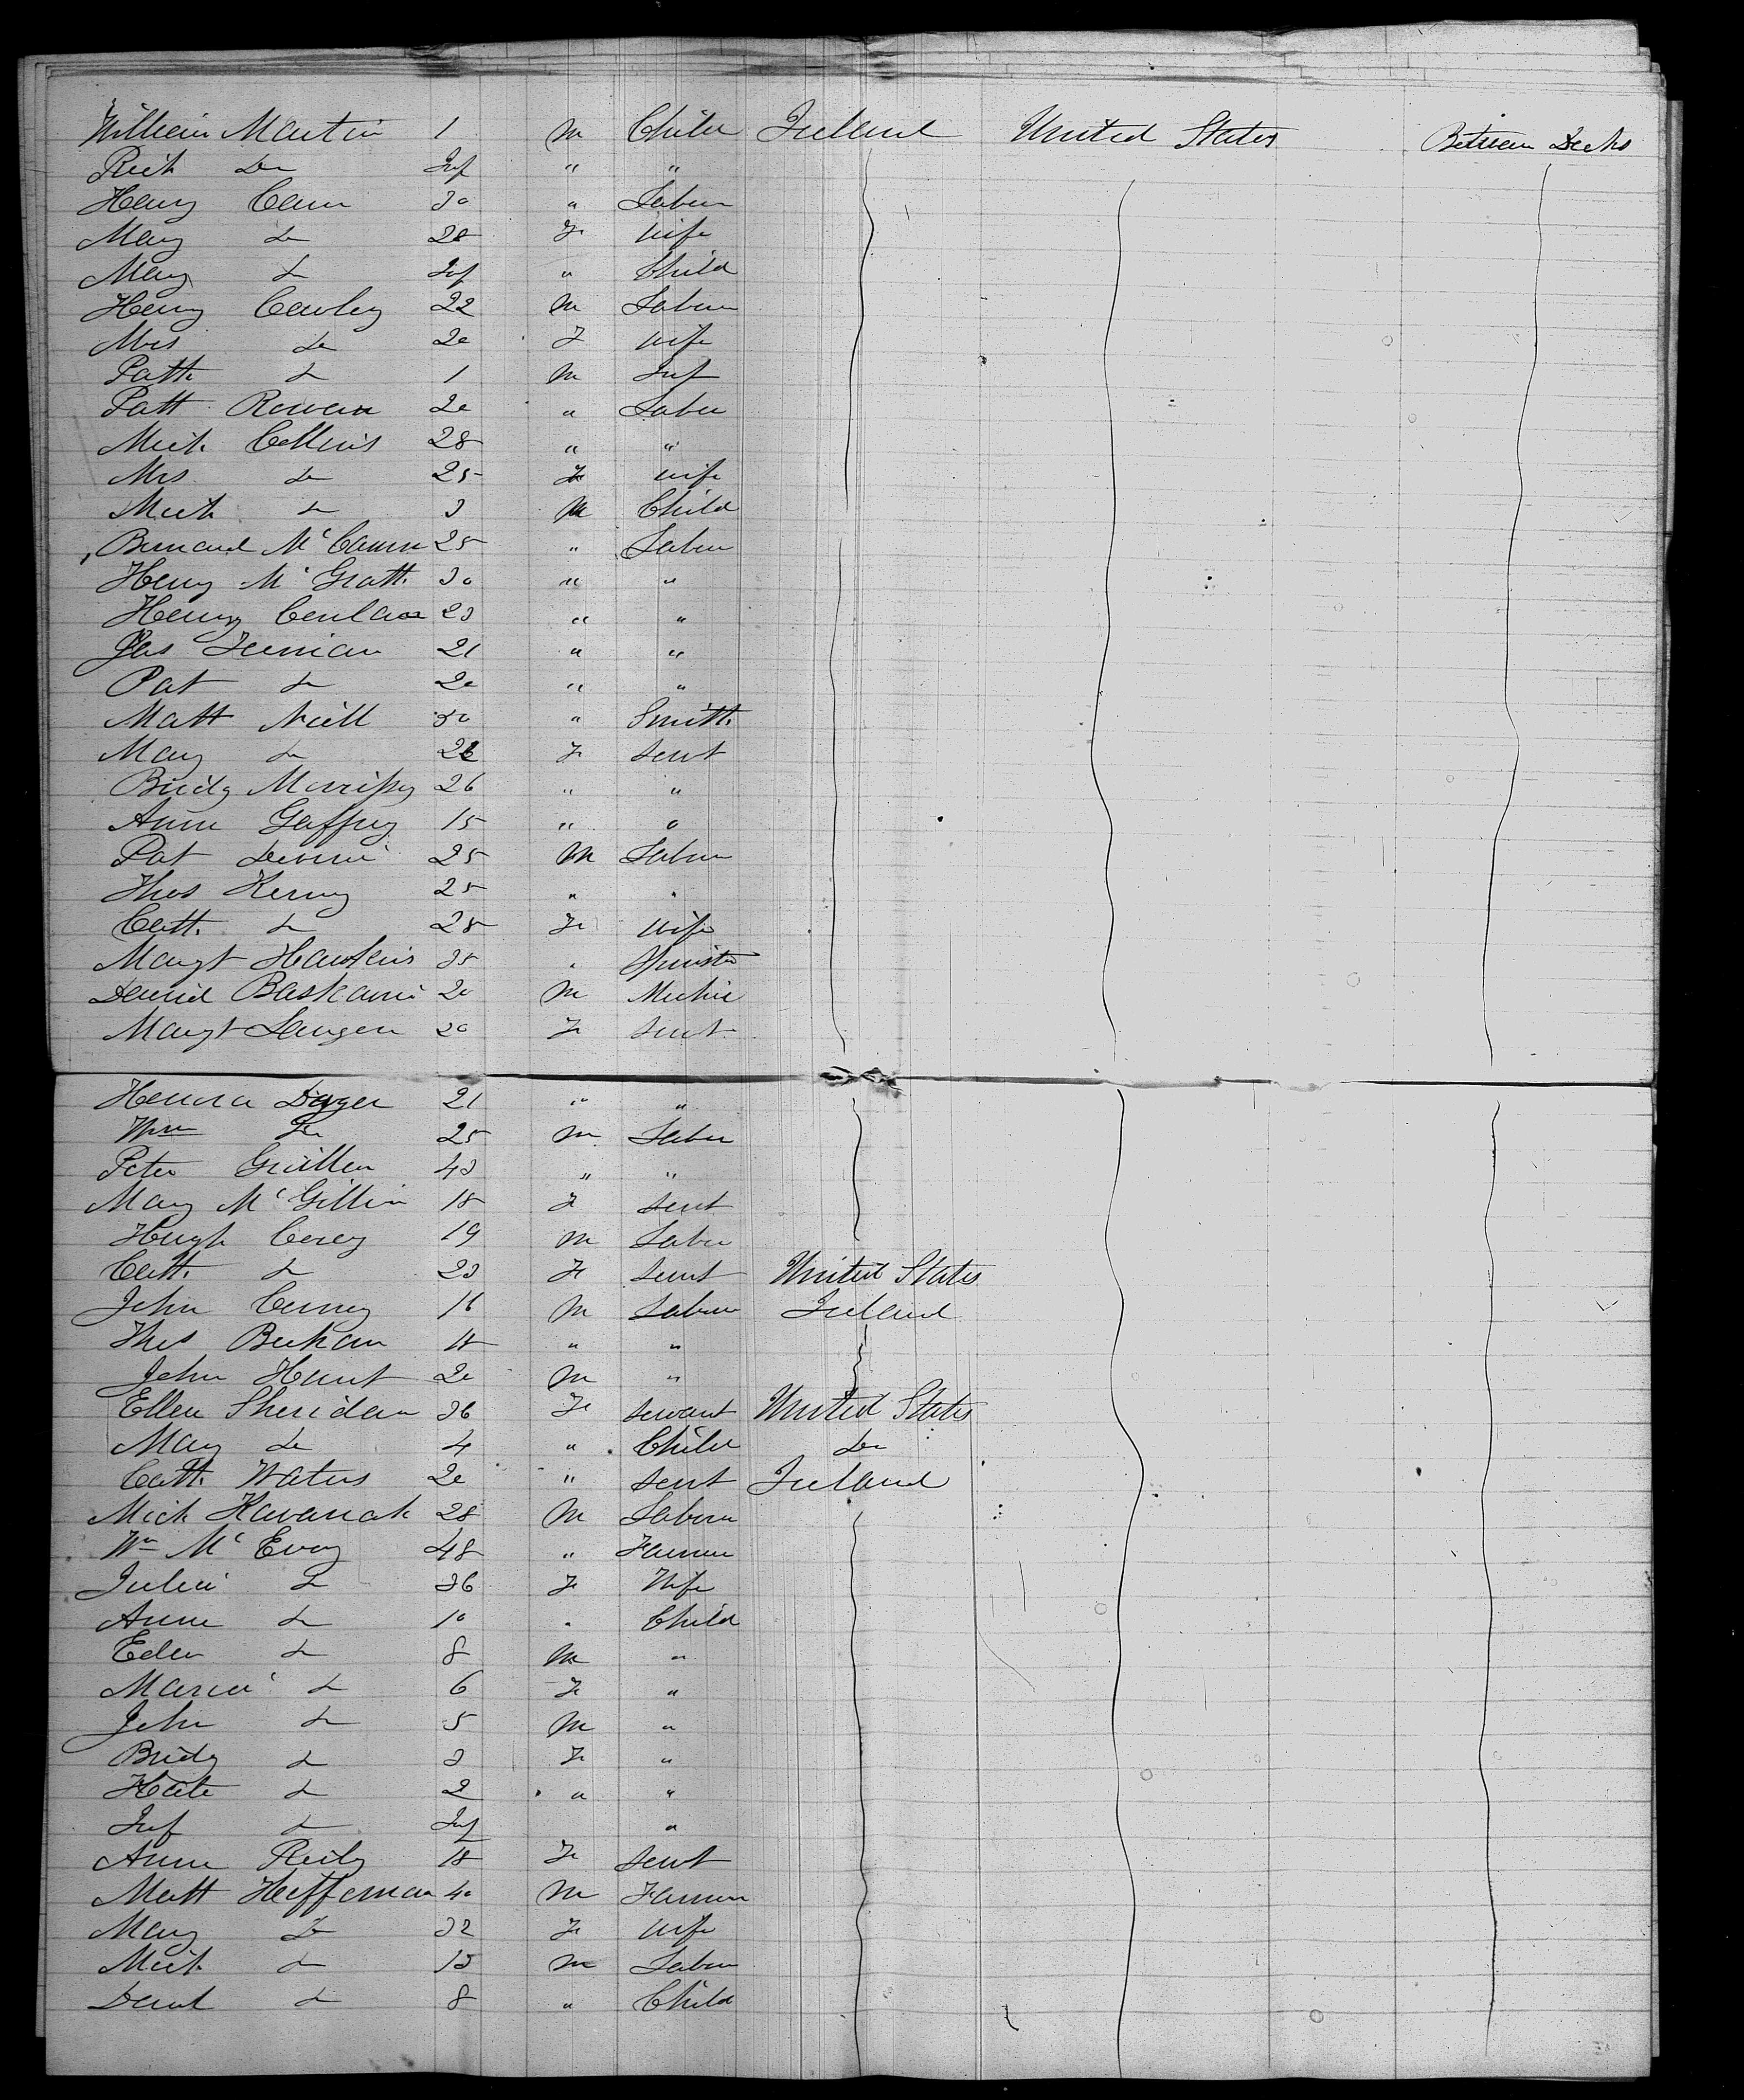 William Martin 1 m Child Ireland United States Between Decks
Rich Do Inf " "
Henry Cain 30 " Labor
Mary Do 28 F Wife
Mary Do Inf " Child
Henry Cawley 22 m Labor
Mrs Do 20 F Wife
Patk Do 1 m Inf
Patt Rowan 20 " Labor
Mich Collins 28 " "
Mrs Do 25 F Wife
Mich Do 3 m Child
Bernard McCann 25 " Labor
Henry McGrath 30 " "
Henry 23 " "
Jas 21 " "
Pat Do 20 " "
Matt Neill 30 " Smith
Mary Do F Sevt
Bridg Morrissy 26 " "
Anne Gaffney 15 " "
Pat 25 m Labor
Thos Kerny 25 " "
Cath Do 28 F Wife
Margt Hawkins 35 " Spinster
David 20 m
Margt 20 F Sevt
Honora Dwyer 21 " "
Wm Do 25 m Labor
Peter 43 " "
Mary McGillin 18 F Sevt
Hugh Corey 19 m Labor
Cath Do 23 F Sevt United States
John 16 m Labor Ireland
Thos 18 " "
John Hunt 20 m "
Ellen Sheridan 36 F Servant United States
Mary Do 4 " Child Do
Cath Waters 20 " Sevt Ireland
Mich Kavanah 28 m Labor
Wm McEvoy 48 " Farmer
Julia Do 36 F Wife
Anne Do 10 " Child
Do 8 m "
Maria Do 6 F "
John Do 5 m "
Bridg Do 3 F "
Kate Do 2 " "
Inf Do Inf "
Anne Reily 18 F Sevt
Matt Heffernan 40 m Farmer
Mary Do 32 F Wife
Mich Do m Labor
Do 8 " Child